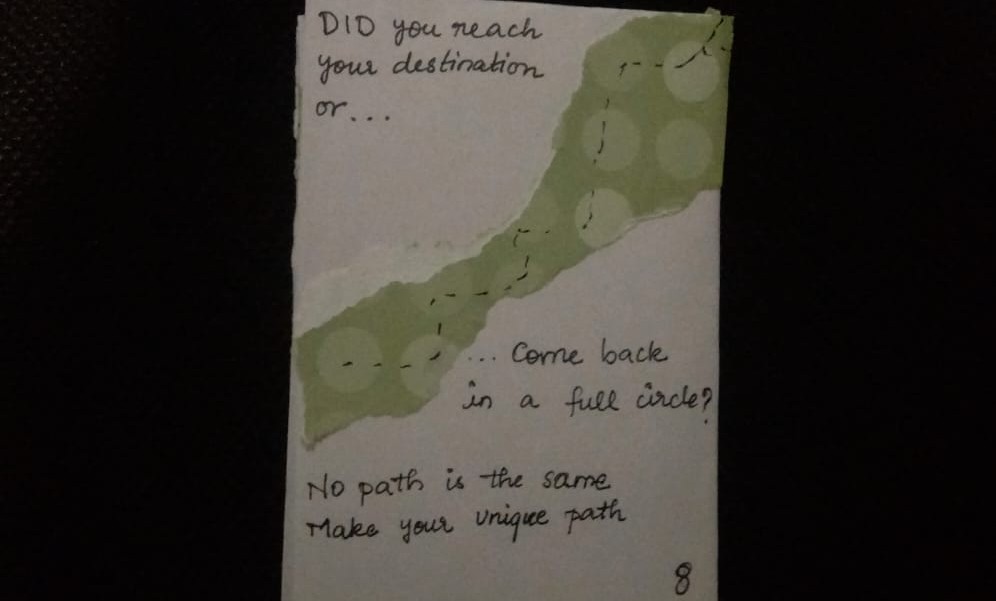 DID you reach
your destination
or...
... Come back
in a full circle?
No path is the same
Make your unique path
8